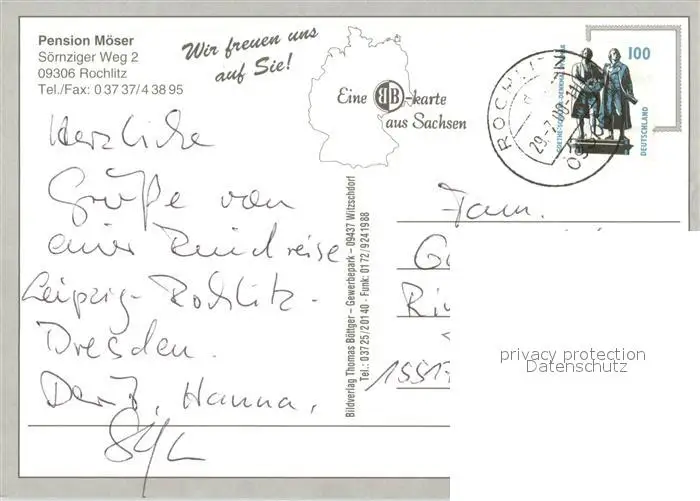 Pension Möser
Sörnziger Weg 2
09306 Rochlitz
Tel./Fax: 0 37 37/4 38 95
Wir freuen uns
auf Sie!
Eine BB-karte
aus Sachsen
ROCHLITZ
100
DEUTSCHLAND
Herzliche
Grüße von
einer Rundreise
Leipzig-Rochlitz-
Dresden.
Hanna,
Bildverlag Thomas Böttger – Gewerbepark – 09437 Witzschdorf
Tel.: 03725/20140 - Funk: 0172/9241988
Fam.
1551
privacy protection
Datenschutz